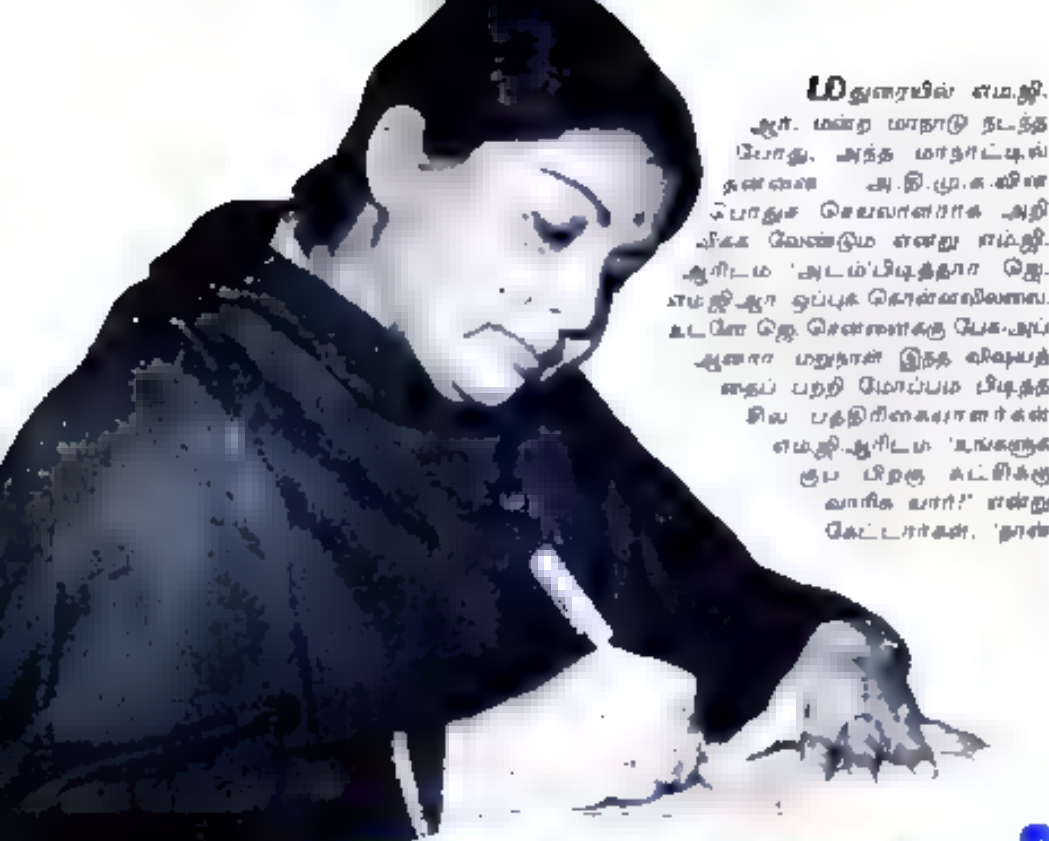 மதுரையில் எம்.ஜி.
ஆர். மன்ற மாநாடு நடந்த
போது, அந்த மாநாட்டில்
தன்னை அ.தி.மு.க.வின்
பொதுச் செயலாளராக அறி
விக்க வேண்டும் என்று எம்.ஜி.
ஆரிடம் 'அடம்'பிடித்தார் ஜெ.
எம்.ஜி.ஆர் ஒப்புக் கொள்ளவில்லை.
உடனே ஜெ. சென்னைக்கு
ஆனார் மறுநாள் இந்த விஷயத்
தைப் பற்றி மோப்பம் பிடித்த
சில பத்திரிகையாளர்கள்
எம்.ஜி.ஆரிடம் 'உங்களுக்
குப் பிறகு கட்சிக்கு
வாரிசு யார்?' என்று
கேட்டார்கள். 'நான்